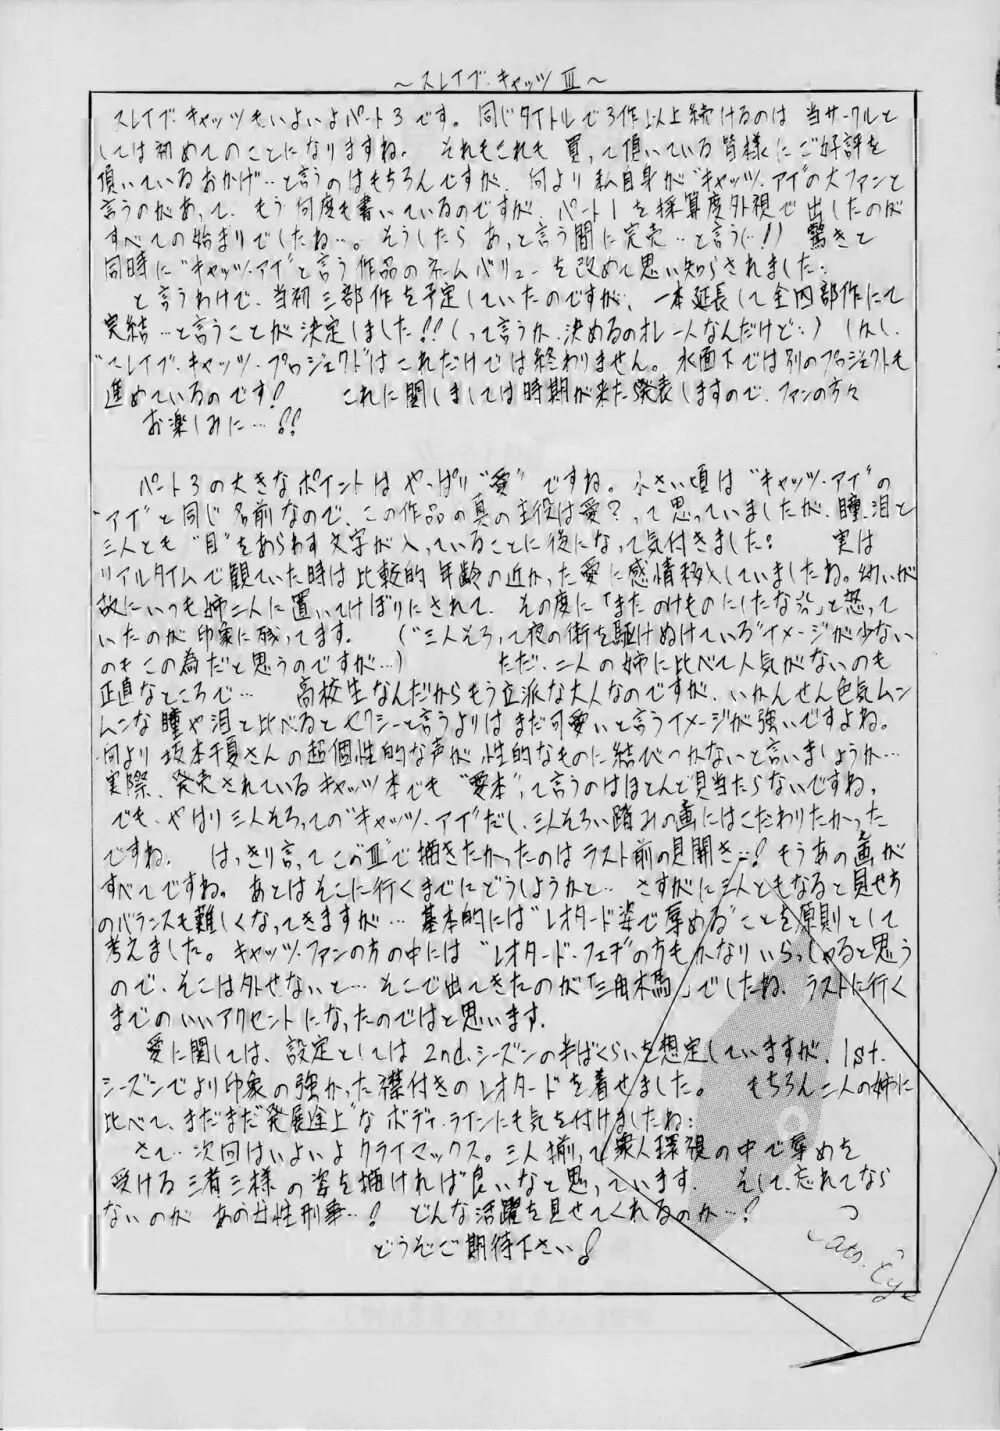 ～スレイブ・キャッツ Ⅲ～
スレイブ・キャッツもいよいよパート3です。同じタイトルで3作以上続けるのは当サークルと
しては初めてのことになりますね。それもこれも買って頂いている皆様にご好評を
頂いているおかげ…と言うのはもちろんですが、何より私自身が“キャッツ・アイ”の大ファンと
言うのがあって、もう何度も書いているのですが、パート1を採算度外視で出したのが
すべての始まりでしたね…。そうしたらあっと言う間に完売…と言う(…!) 驚きと
同時に“キャッツ・アイ”と言う作品のネームバリューを改めて思い知らされました…
と言うわけで、当初三部作を予定していたのですが、一本延長して全四部作にて
完結…と言うことが決定しました!!(って言うか、決めるのオレ一人なんだけど…) しかし、
“スレイブ・キャッツ・プロジェクト”はこれだけでは終わりません。水面下では別のプロジェクトも
進めているのです! これに関しましては時期が来た発表しますので、ファンの方々
お楽しみに…!!
パート3の大きなポイントはやっぱり“愛”ですね。小さい頃は“キャッツ・アイ”の
“アイ”と同じ名前なので、この作品の真の主役は愛?って思っていましたが、瞳、泪と
三人とも“目”をあらわす文字が入っていることに後になって気付きました… 実は
リアルタイムで観ていた時は比較的年齢の近かった愛に感情移入していましたね。幼いが
故にいつも姉二人に置いてけぼりにされて、その度に「またのけものにしたな」と怒って
いたのが印象に残ってます。(“三人そろって夜の街を駆けぬけている”イメージが少ない
のもこの為だと思うのですが…) ただ、二人の姉に比べて人気がないのも
正直なところで… 高校生なんだからもう立派な大人なのですが、いかんせん色気ムン
ムンな瞳や泪と比べるとセクシーと言うよりはまだ可愛いと言うイメージが強いですよね。
何より坂本千夏さんの超個性的な声が性的なものに結びつかないと言いましょうか…
実際、発売されているキャッツ本でも“愛本”って言うのはほとんど見当たらないですね。
でも、やはり三人そろっての“キャッツ・アイ”だし、三人そろい踏みの画にはこだわりたかった
ですね。はっきり言ってこの“Ⅲ”で描きたかったのはラスト前の見開き…!もうあの画が
すべてですね。あとはそこに行くまでにどうしようかと… さすがに三人ともなると見せ方
のバランスも難しくなってきますが… 基本的には“レオタード姿で辱める”ことを原則として
考えました。キャッツ・ファンの方の中には“レオタード・フェチ”の方もかなりいらっしゃると思う
ので、そこは外せないと… そこで出てきたのが「三角木馬」でしたね、ラストに行く
までのいいアクセントになったのではと思います。
愛に関しては、設定としては2nd.シーズンの半ばくらいを想定していますが、1st.
シーズンでより印象の強かった襟付きのレオタードを着せました。もちろん二人の姉に
比べて、まだまだ“発展途上”なボディ・ラインにも気を付けましたね…
さて…次回はいよいよクライマックス。三人揃って衆人環視の中で辱めを
受ける三者三様の姿を描ければ良いなと思っています。そして、忘れてなら
ないのがあの女性刑事…! どんな活躍を見せてくれるのか…?
どうぞご期待下さい!
Cat's Eye